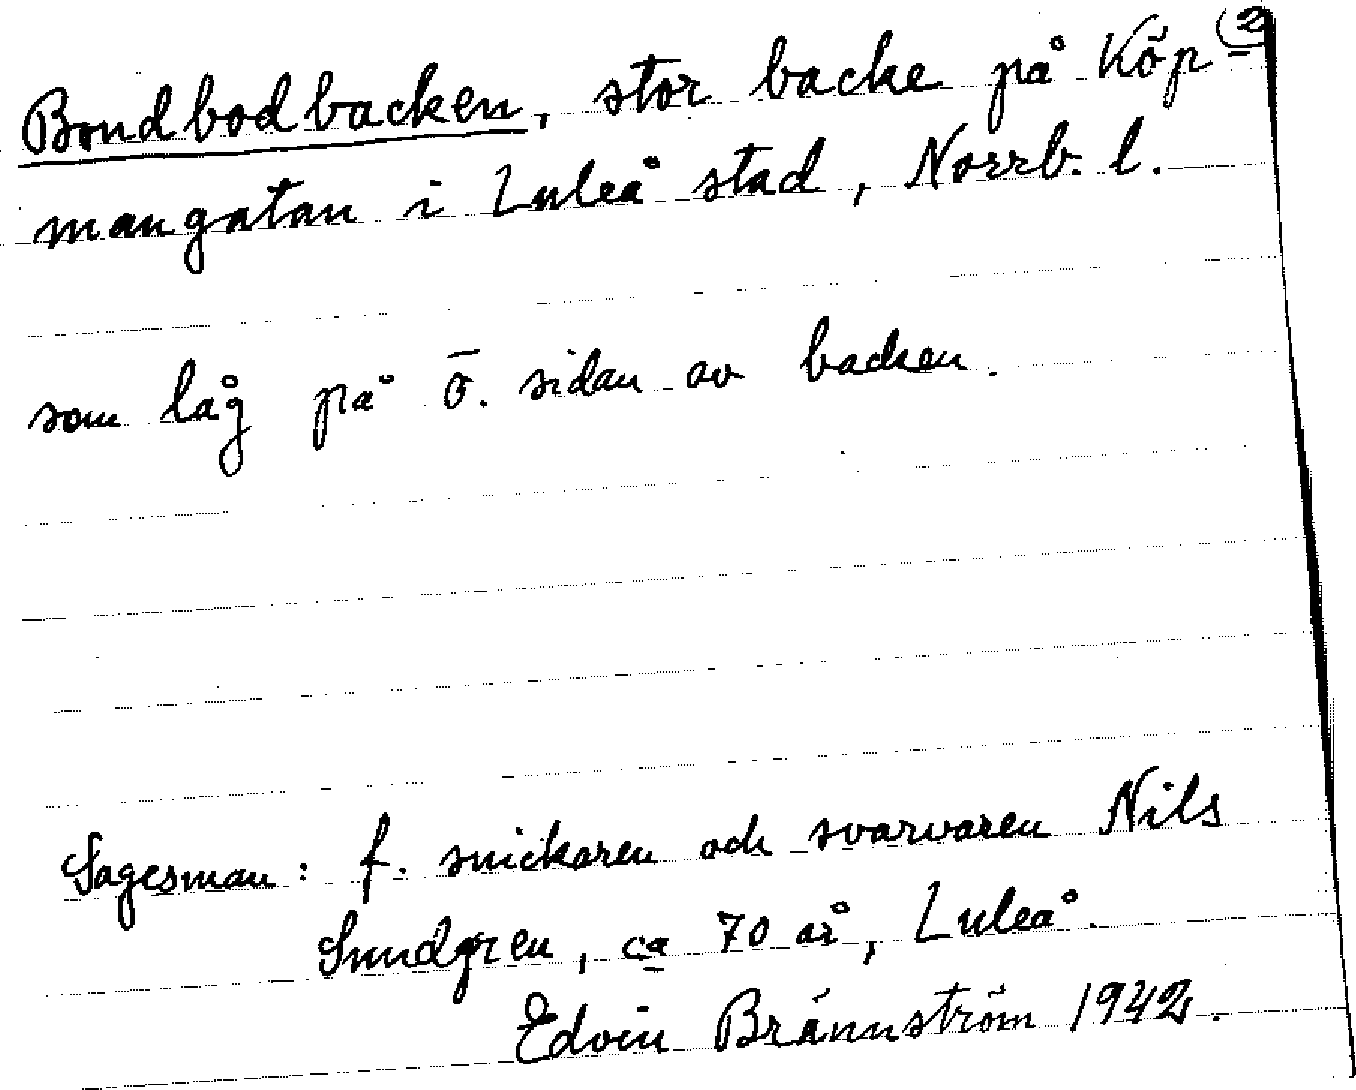 Bondbodbacken, stor backe på Köp (2
mangatan i Luleå stad, Norrb. l.
som låg på ö. sidan av backen.
Sagesman: f. snickaren och svarvaren Nils
Sundgren, ca 70 år, Luleå.
Edvin Brännström 1942.